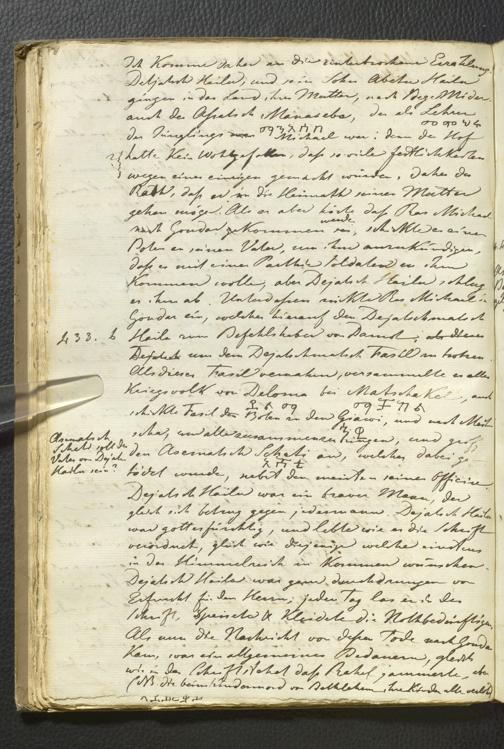 Ich komme daher an die unterbrochene Erzählung
Detjatsch Hailu, und sein Sohn Abeter Hailu
gingen in das Land ihrer Mutter, nach Bege Meder
auch der Asatsch Manassebe, der als Lehrer
des Jünglings Michael war: denn der Hof
hatte kein Wohlgefallen, daß so viele Festlichkeiten
wegen eines einzigen gemacht würden, daher der
Rath, daß er in die Heimath seiner Mutter
gehen möge. Als er aber hörte daß Ras Michael
nach Gondar gekommen sei, schickte er einen
Boten an seinen Vater, um ihm anzukündigen,
daß er mit einer Parthie Soldaten zu ihm
kommen wolle, aber Dejatsch Hailu schlug
es ihm ab. Unterdessen rückte Ras Michael in
Gondar ein, welcher hierauf den Dejatschmatsch
433. b Hailu zum Befehlshaber von Damot,
um den Dejatschmatsch Fasil zu
Als dieser Fasil vernahm, versammelte er alles
Kriegsvolk von Deloma bei Matschakel, auch
schickte Fasil den Boten in den
um alle zusammen zu bringen, und griff
den Asematsch Schati an, welcher dabei ge-
tödtet wurde, nebst den meisten seiner Officiere.
Asematsch
Schati soll der
Vater von Dejatsch
Hailu sein?
Dejatsch Hailu war ein braver Mann, der
gleich sich betrug gegen jedermann. Dejatsch Hailu
war gottesfürchtig, und lebte wie es die Schrift
verordnet, gleich wie diejenigen welche einstens
in das Himmelreich zu kommen wünschen.
Dejatsch Hailu war ganz durchdrungen von
Ehrfurcht für den Herrn; jeden Tag las er in der
Schrift, speisete & kleidete die Nothbedürftigen.
Als nun die Nachricht von dessen Tode nach Gondar
kam, war ein allgemeines Bedauern, gleich
wie in der Schrift steht daß Rahel jammerte, als
(NB. die beim Kindermord von Bethlehem, ihre Kinder alle verlohr